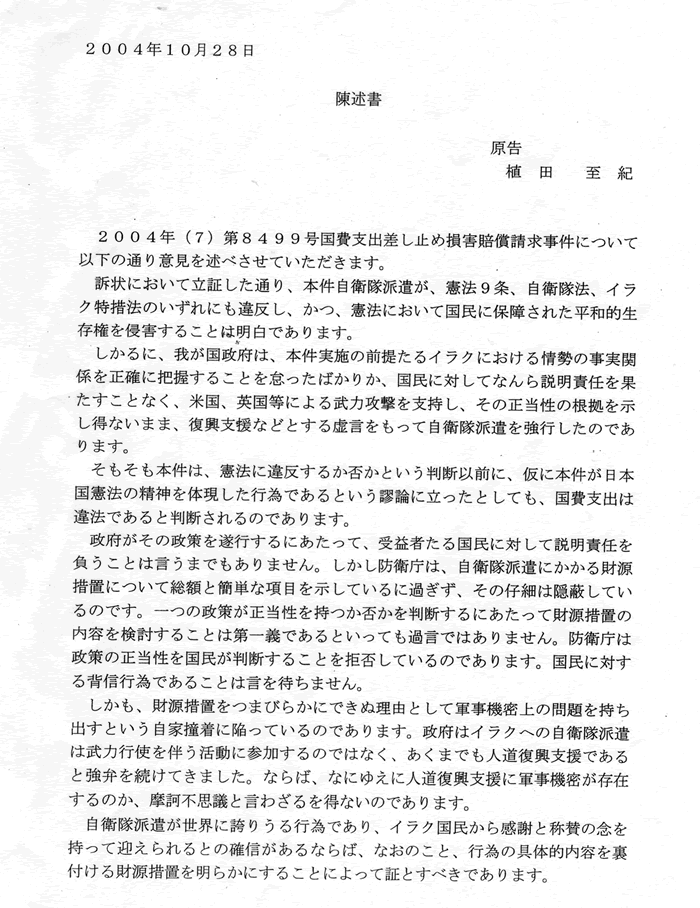 2004年10月28日
陳述書
原告
植田 至紀
2004年(7)第8499号国費支出差し止め損害賠償請求事件について
以下の通り意見を述べさせていただきます。
訴状において立証した通り、本件自衛隊派遣が、憲法9条、自衛隊法、イラ
ク特措法のいずれにも違反し、かつ、憲法において国民に保障された平和的生
存権を侵害することは明白であります。
しかるに、我が国政府は、本件実施の前提たるイラクにおける情勢の事実関
係を正確に把握することを怠ったばかりか、国民に対してなんら説明責任を果
たすことなく、米国、英国等による武力攻撃を支持し、その正当性の根拠を示
し得ないまま、復興支援などとする虚言をもって自衛隊派遣を強行したのであ
ります。
そもそも本件は、憲法に違反するか否かという判断以前に、仮に本件が日本
国憲法の精神を体現した行為であるという謬論に立ったとしても、国費支出は
違法であると判断されるのであります。
政府がその政策を遂行するにあたって、受益者たる国民に対して説明責任を
負うことは言うまでもありません。しかし防衛庁は、自衛隊派遣にかかる財源
措置について総額と簡単な項目を示しているに過ぎず、その仔細は隠蔽してい
るのです。一つの政策が正当性を持つか否かを判断するにあたって財源措置の
内容を検討することは第一義であるといっても過言ではありません。防衛庁は
政策の正当性を国民が判断することを拒否しているのであります。国民に対す
る背信行為であることは言を待ちません。
しかも、財源措置をつまびらかにできぬ理由として軍事機密上の問題を持ち
出すという自家撞着に陥っているのであります。政府はイラクへの自衛隊派遣
は武力行使を伴う活動に参加するのではなく、あくまでも人道復興支援である
と強弁を続けてきました。ならば、なにゆえに人道復興支援に軍事機密が存在
するのか、摩訶不思議と言わざるを得ないのであります。
自衛隊派遣が世界に誇りうる行為であり、イラク国民から感謝と称賛の念を
持って迎えられるとの確信があるならば、なおのこと、行為の具体的内容を裏
付ける財源措置を明らかにすることによって証とすべきであります。